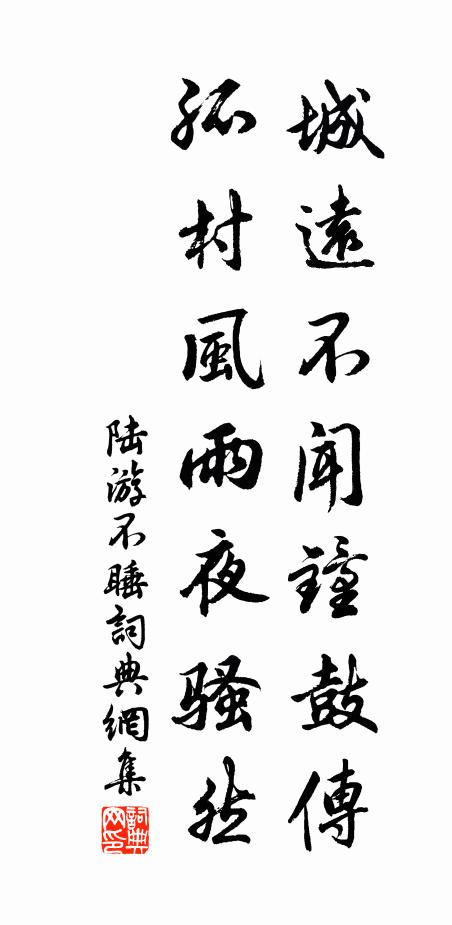 城遠不聞鐘鼓傳
孤村風雨夜騷然
陆游不睡詞典網集
詞典网印